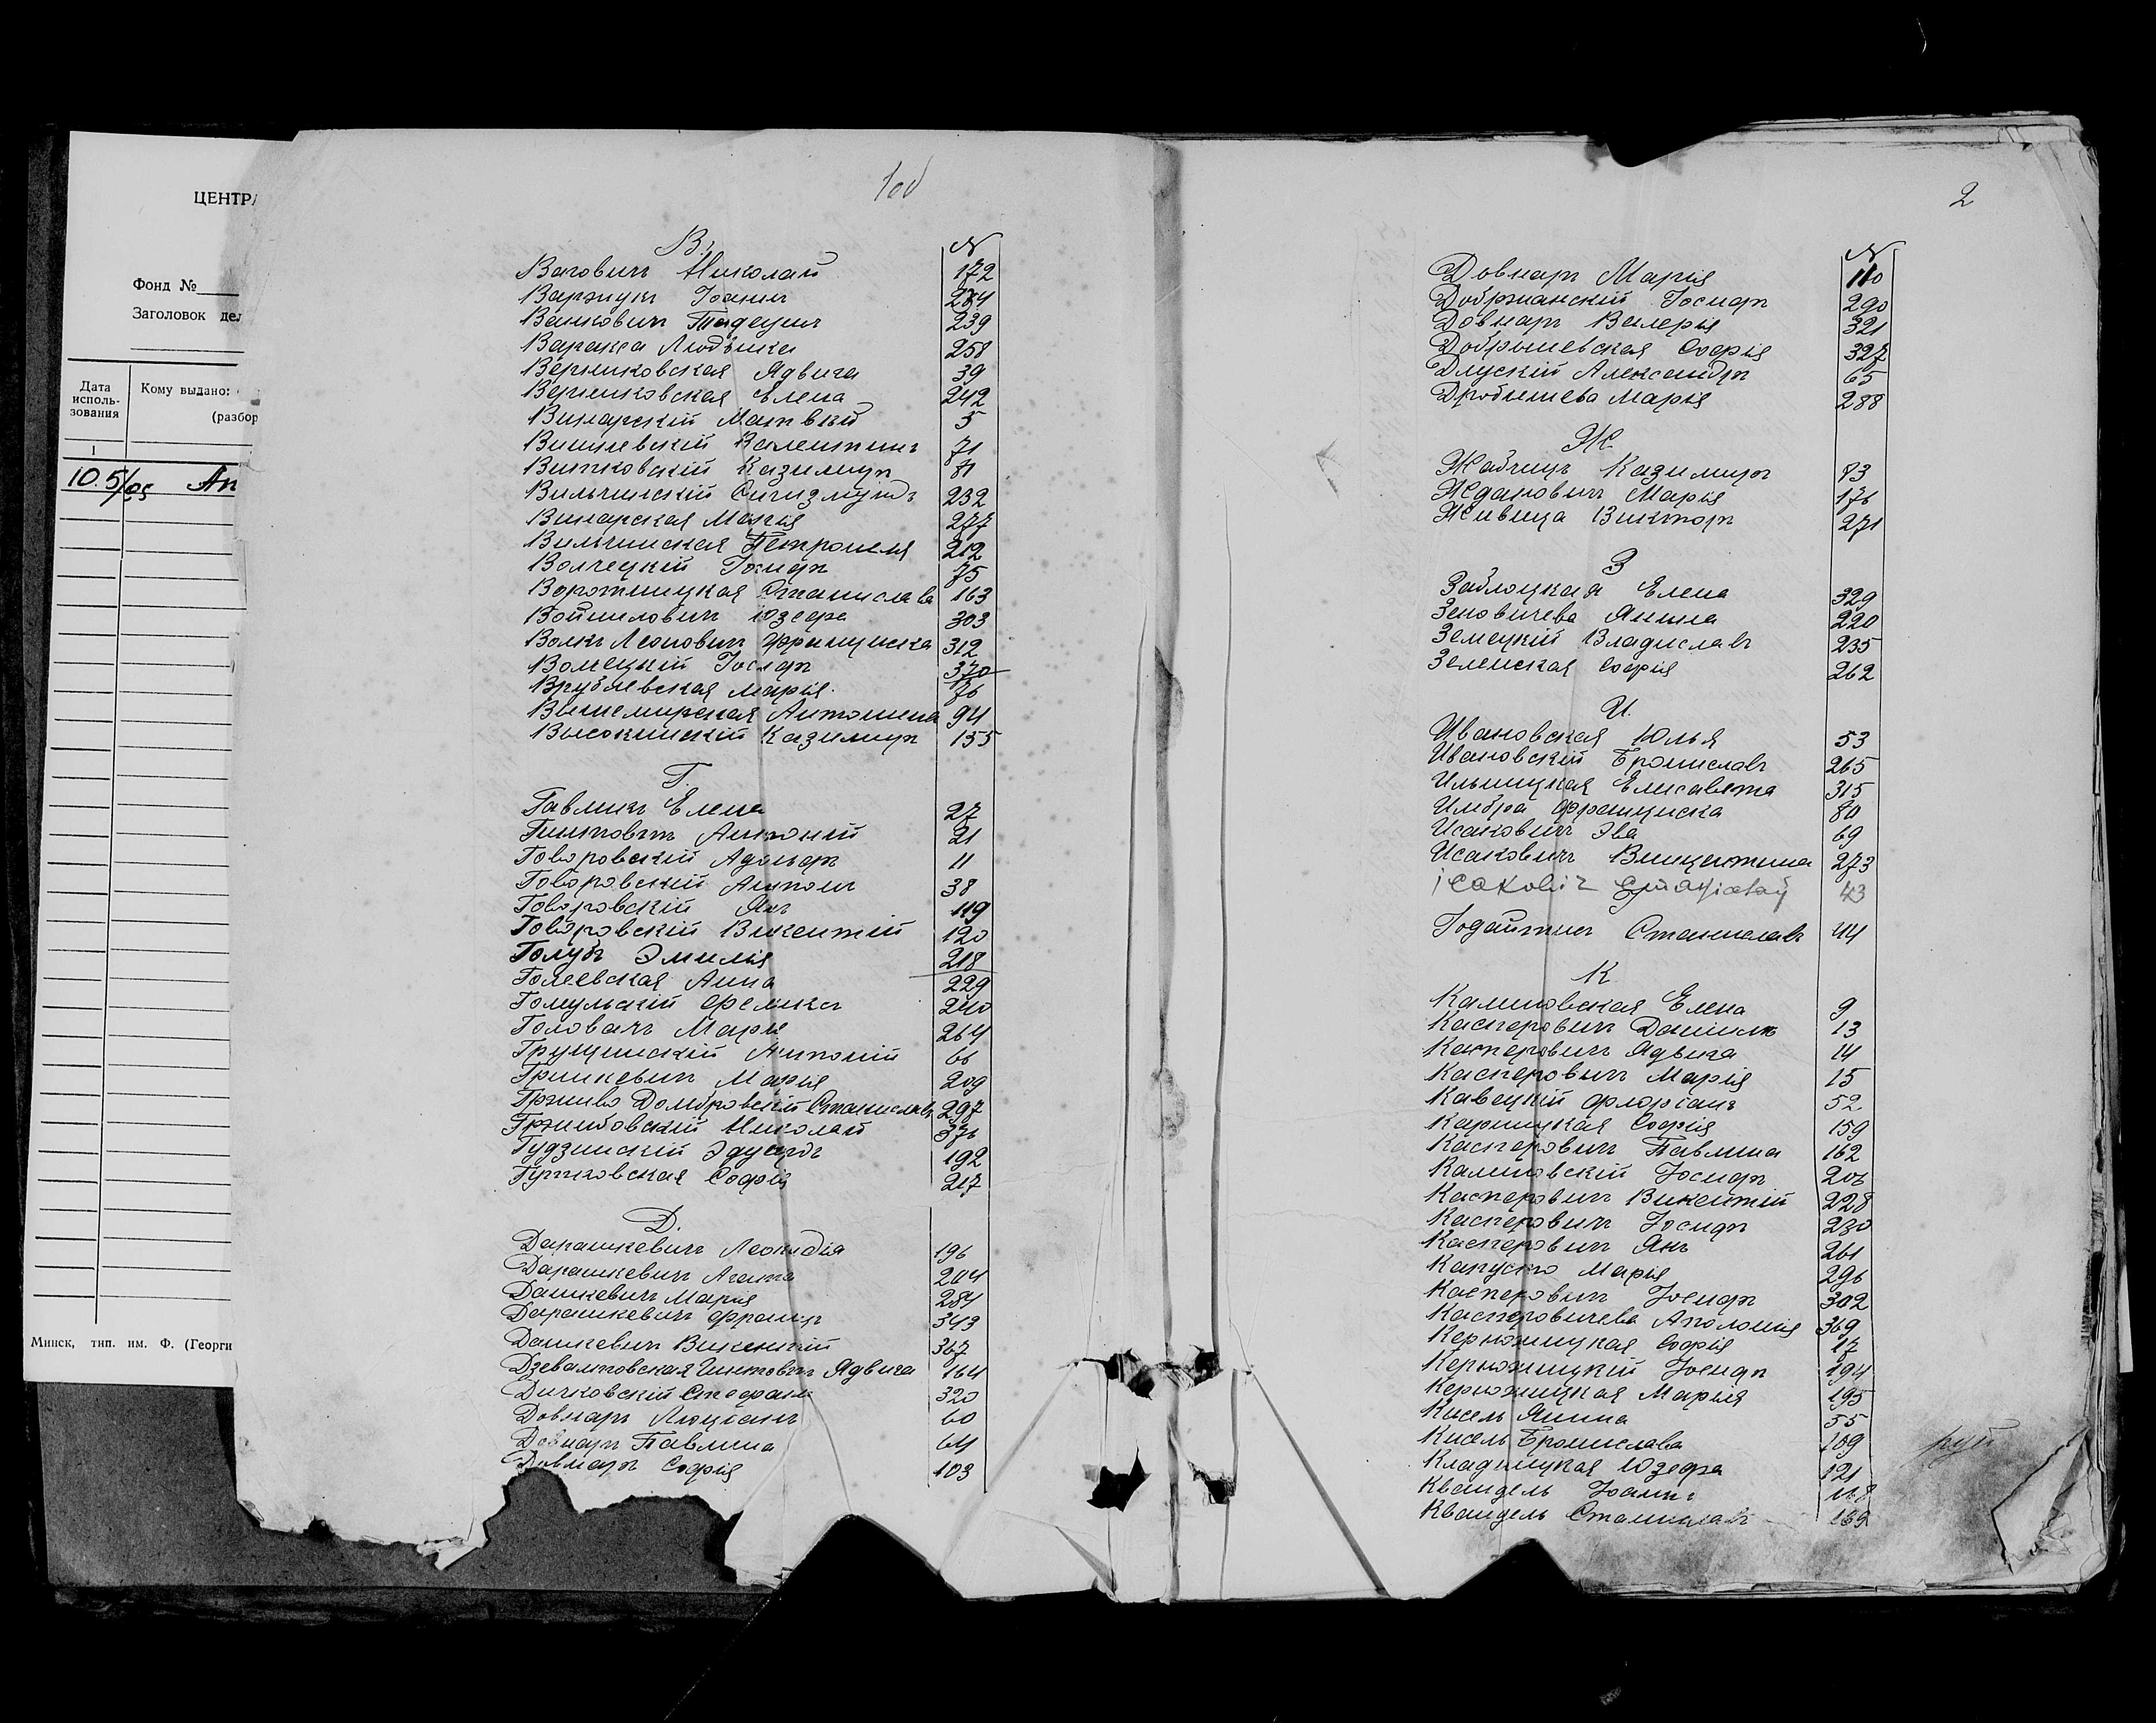 ЦЕНТРА
Фонд №
Заголовок дел
Дата использования
Кому выдано:
(разбор
1
10.5/95 Ап
Минск, тип. им. Ф. (Георги
1об
В.
N
Вагович Николай 172
Варжук Іоанн 284
Ванкович Тадеуш 239
Варакса Людвика 258
Верниковская Ядвига 39
Верниковская Елена 242
Винарскій Матвѣй 5
Вишневскій Валентинъ 71
Витковскій Казимиръ 81
Вильчинскій Сигизмундъ 232
Винарская Марія 277
Вильчинская Петронеля 212
Волчецкій Іосифъ 75
Воротницкая Станислава 163
Войнилович Юзефа 303
Волкъ Леонович Франциска 312
Волчецкій Іосифъ 370
Врублевская Марія 76
Вышемирская Антонина 94
Высокинскій Казимиръ 155
Г
Гавликъ Елена 27
Гинтовтъ Антоній 21
Говоровскій Адольфъ 11
Говоровскій Антонъ 38
Говоровскій Янъ 119
Говоровскій Викентій 120
Голубъ Эмилія 218
Голеевская Анна 229
Гомульскій Феликсъ 240
Головачъ Марія 264
Грущинскій Антоній 66
Гринкевич Марія 209
Грживо Домбровскій Станиславъ 297
Гржибовскій Николай 376
Гудзинскій Эдуардъ 192
Гутковская Софія 217
Д.
Дарашкевич Леокадія 196
Дарашкевич Агата 204
Дашкевич Марія 284
Дарашкевич Францъ 343
Дашкевич Викентій 367
Дзевалтовская Гинтовтъ Ядвига 164
Дичковскій Стефанъ 320
Довнаръ Люціанъ 60
Довнаръ Павлина 64
Довнаръ Софія 103
2
N
Довнаръ Марія 110
Добржанскій Іосифъ 290
Довнаръ Валерія 321
Добрышевская Софія 327
Длускій Александръ 65
Дробышева Марія 288
Ж.
Жабчицъ Казимиръ 83
Жданович Марія 176
Живица Викторъ 271
З
Заблоцкая Елена 329
Зеновичева Янина 220
Земецкій Владиславъ 235
Зеленская Софія 262
И.
Ивановская Юлья 53
Ивановскій Брониславъ 265
Ильницкая Елисавета 315
Имбра Франциска 80
Исакович Эва 69
Исаковичъ Винцентина 273
43
Іодайтисъ Станиславъ 44
К
Калиновская Елена 9
Касперович Даніилъ 13
Касперович Ядвига 14
Касперович Марія 15
Кавецкій Флоріанъ 52
Карницкая Софія 159
Касперович Павлина 162
Калиновскій Іосифъ 206
Касперович Викентій 228
Касперович Іосифъ 230
Касперович Янъ 261
Капуско Марія 296
Касперович Іосифъ 302
Касперовичева Аполонія 369
Керножицкая Софія 17
Керножицкій Іосифъ 194
Керножицкая Марія 195
Кисель Янина 55
Кисель Бронислава 109
Кладницкая Юзефа 121
Квандель Іоаннъ 118
Квандель Станиславъ 169